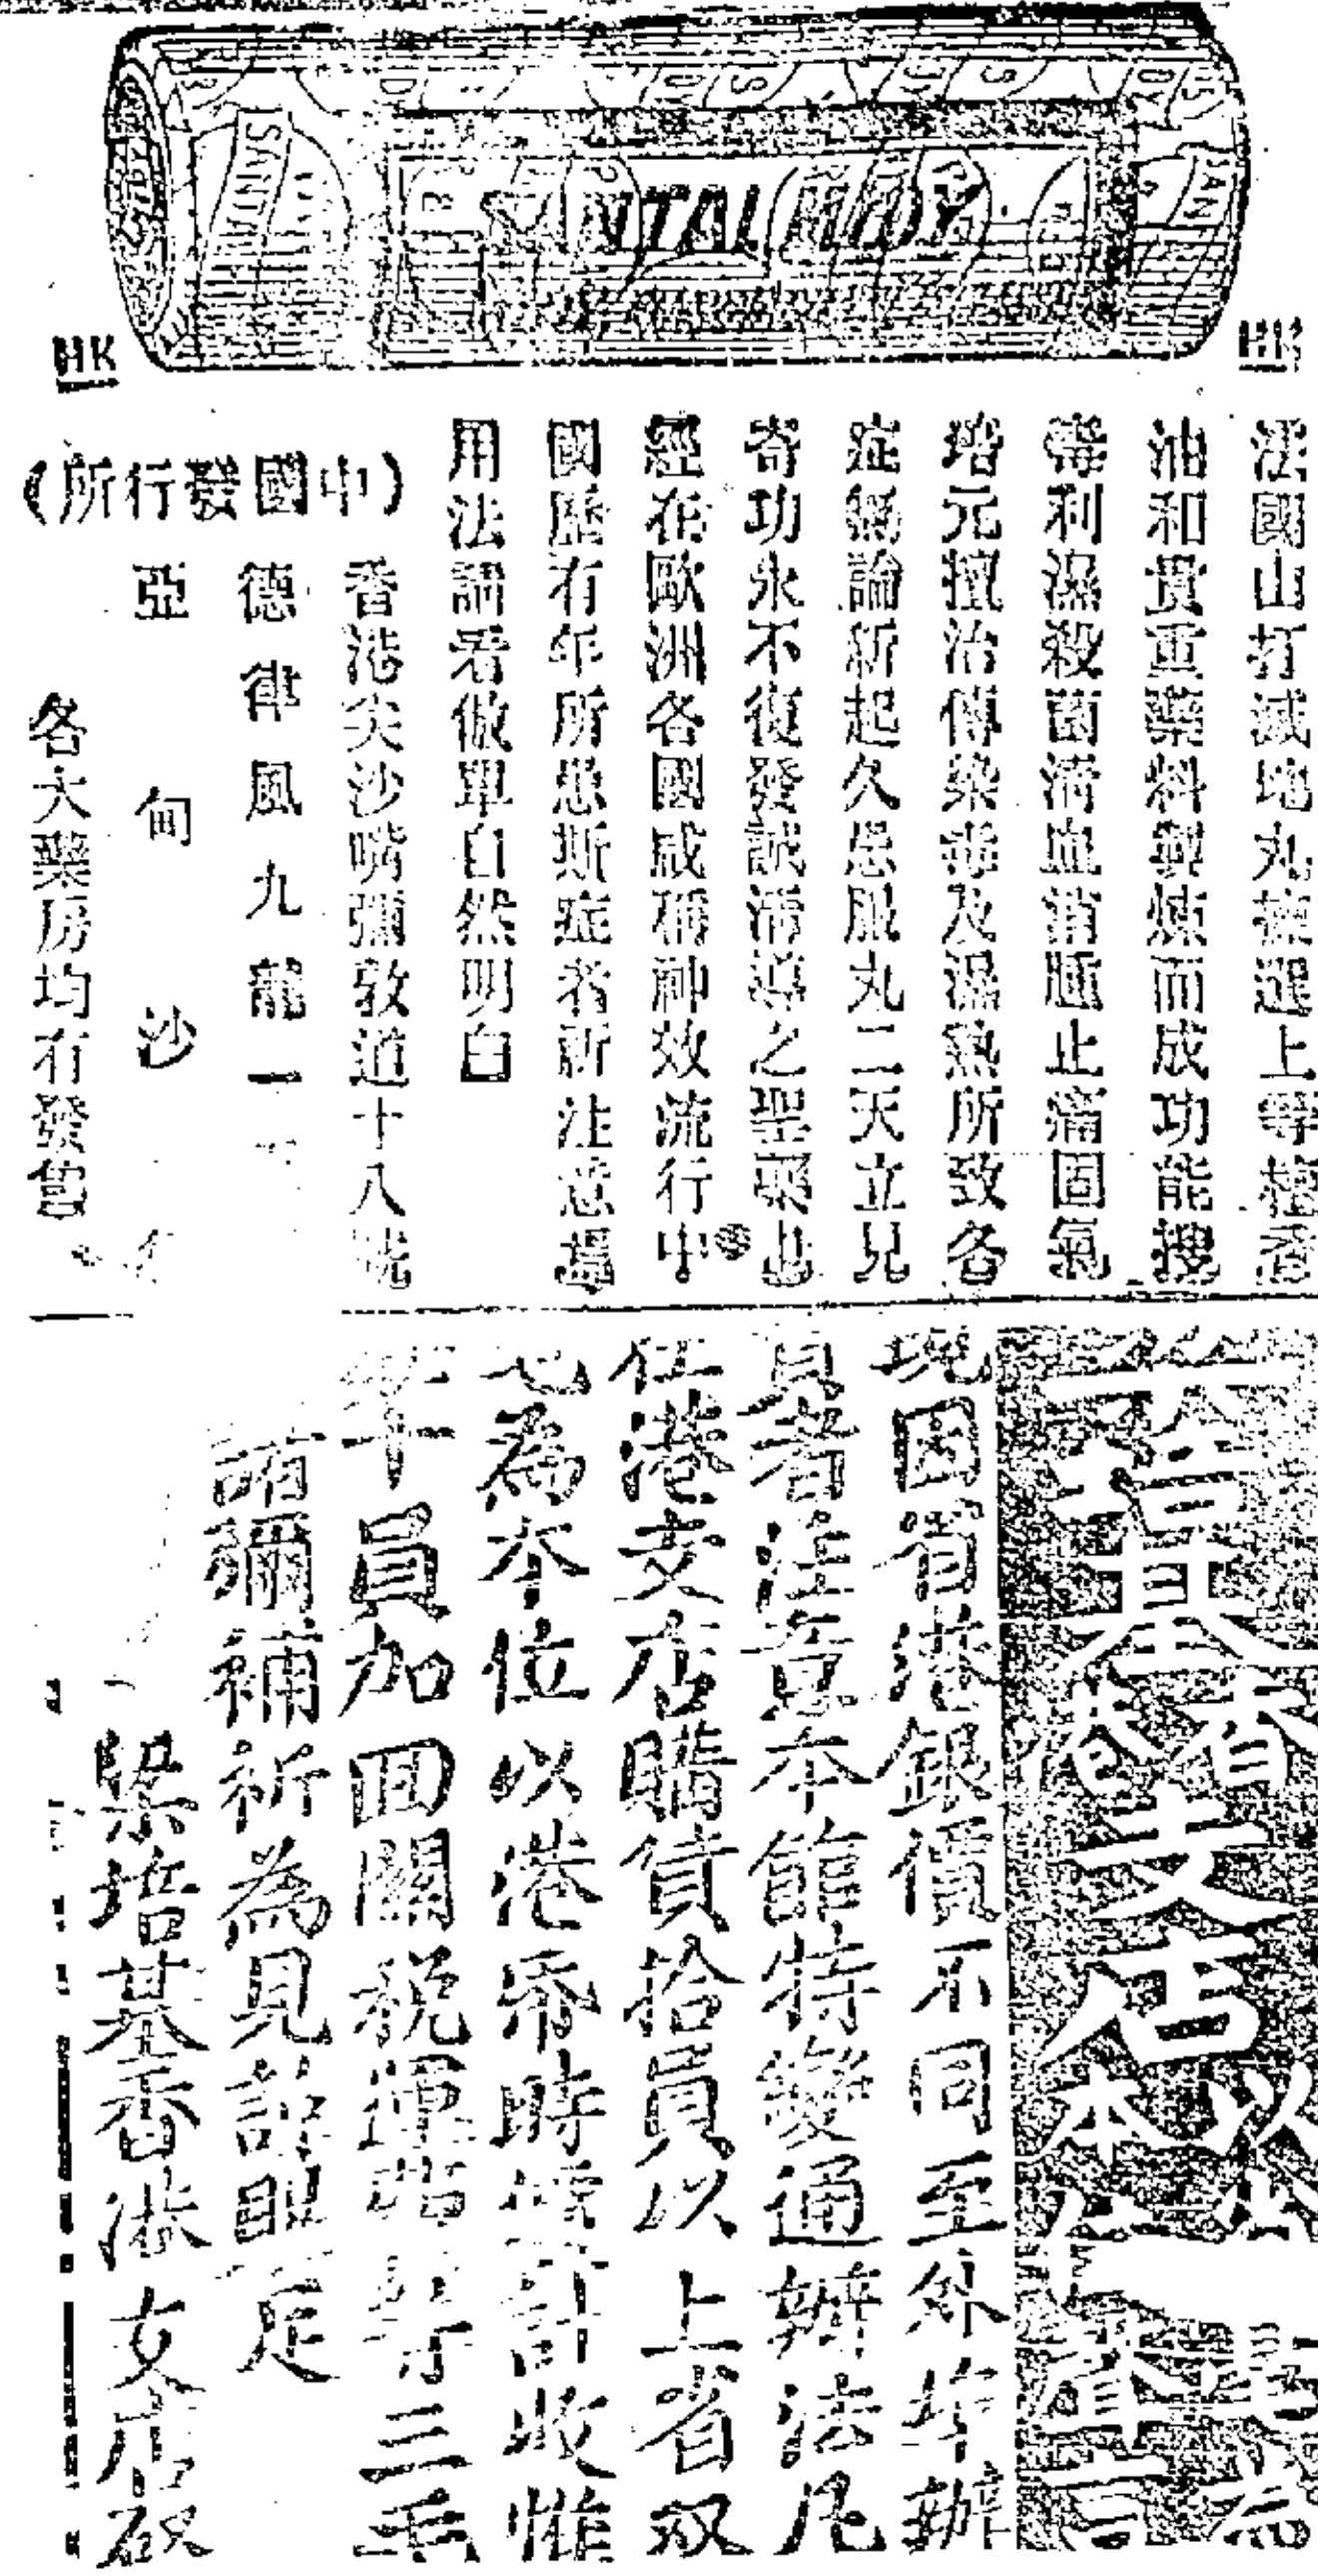 SANTAL MIDY
HK
HK
法國山打滅地丸揀選上等檀香
油和貴重藥料製煉而成功能搜
毒利濕殺菌清血消腫止痛固氣
培元擅治傳染毒及濕熱所致各
症無論新起久患服丸二天立見
奇功永不復發誠淸導之聖藥也
經在歐洲各國咸稱神效流行中
國歷有年所患斯症者祈注意場
用法請看倣單自然明白
(中國發行所)
香港尖沙嘴彌敦道十八號
德律風九龍一
亞甸沙
各大藥房均有發售
支店
現因省港銀價不同至外埠辦
貨者注意本館特變通辦法凡
在港支店購貨拾員以上省双
毛為本位以港帋時價計收惟
每員加回關稅運費等三毛
請彌補祈為見諒是
梁培基香港支店啟